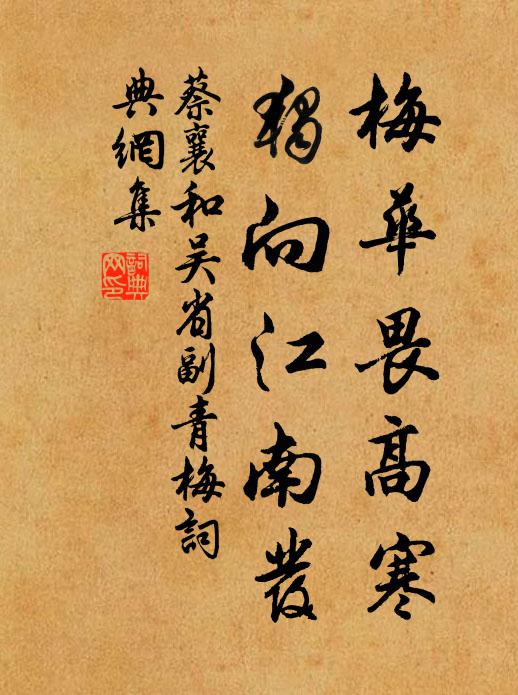 梅華畏高寒
獨向江南發
蔡襄和吴省副青梅詞
典網集
詞典網印